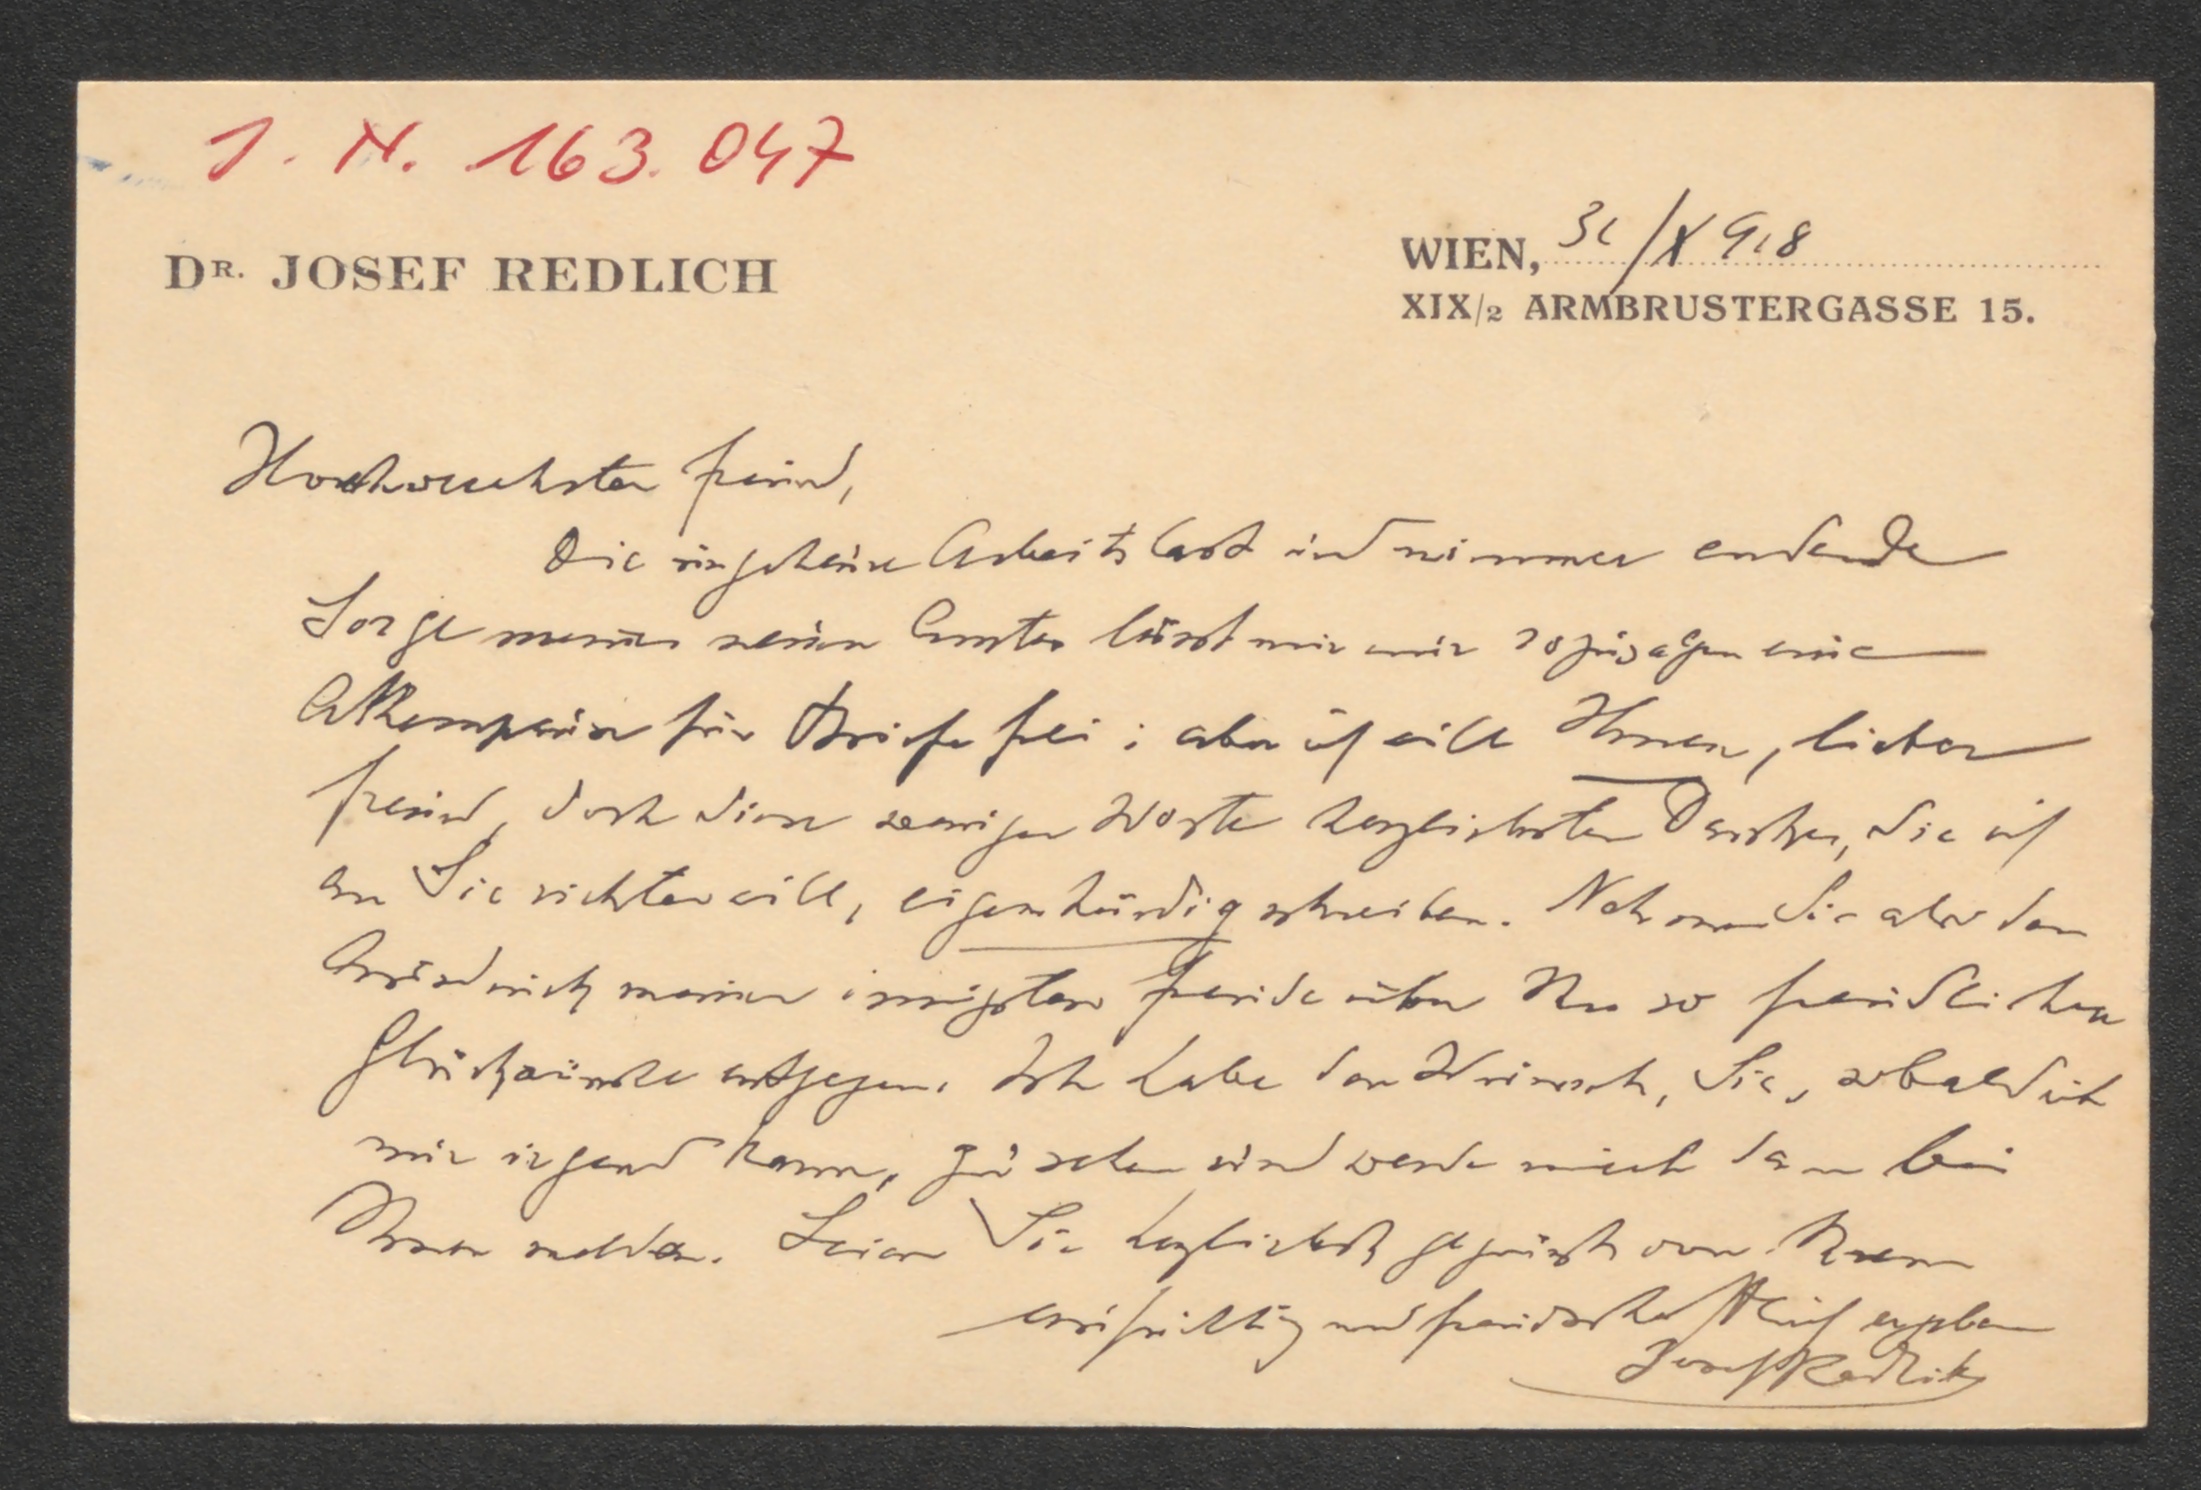 J. N. 163.047
DR. JOSEF REDLICH
WIEN, 31/X 918
XIX/2 ARMBRUSTERGASSE 15.
Hochverehrter Freund,
Die ungeheure Arbeitslast und nimmer endende
Sorge meines neuen Amtes lässt mir nur sozusagen eine
Athempause für Briefe frei; aber ich will Ihnen, lieber
Freund, doch diese wenigen Worte herzlichsten Dankes, die ich
an Sie richten will, eigenhändig schreiben. Nehmen Sie also den
Ausdruck meiner innigsten Freude über Ihre so freundlichen
Glückwünsche entgegen. Ich habe den Wunsch, Sie, sobald ich
nur irgend kann, zu sehen und werde mich dann bei
Ihnen melden. Seien Sie herzlichst gegrüsst von Ihrem
aufrichtig und freundschaftlich ergebenen
Josef Redlich